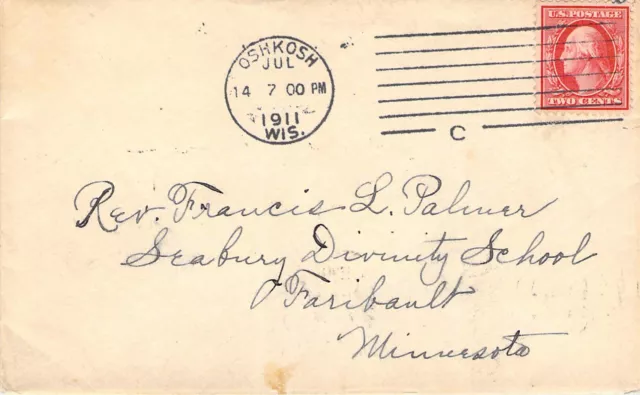 OSHKOSH
JUL
14 7 00 PM
1911
WIS.
C
U.S. POSTAGE
TWO CENTS
Rev. Francis L. Palmer
Seabury Divinity School
Faribault
Minnesota